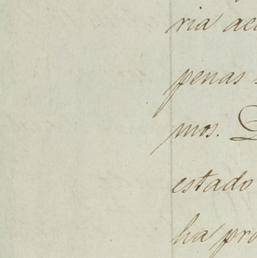 ria aca
penas
mos.
estado
ha pro